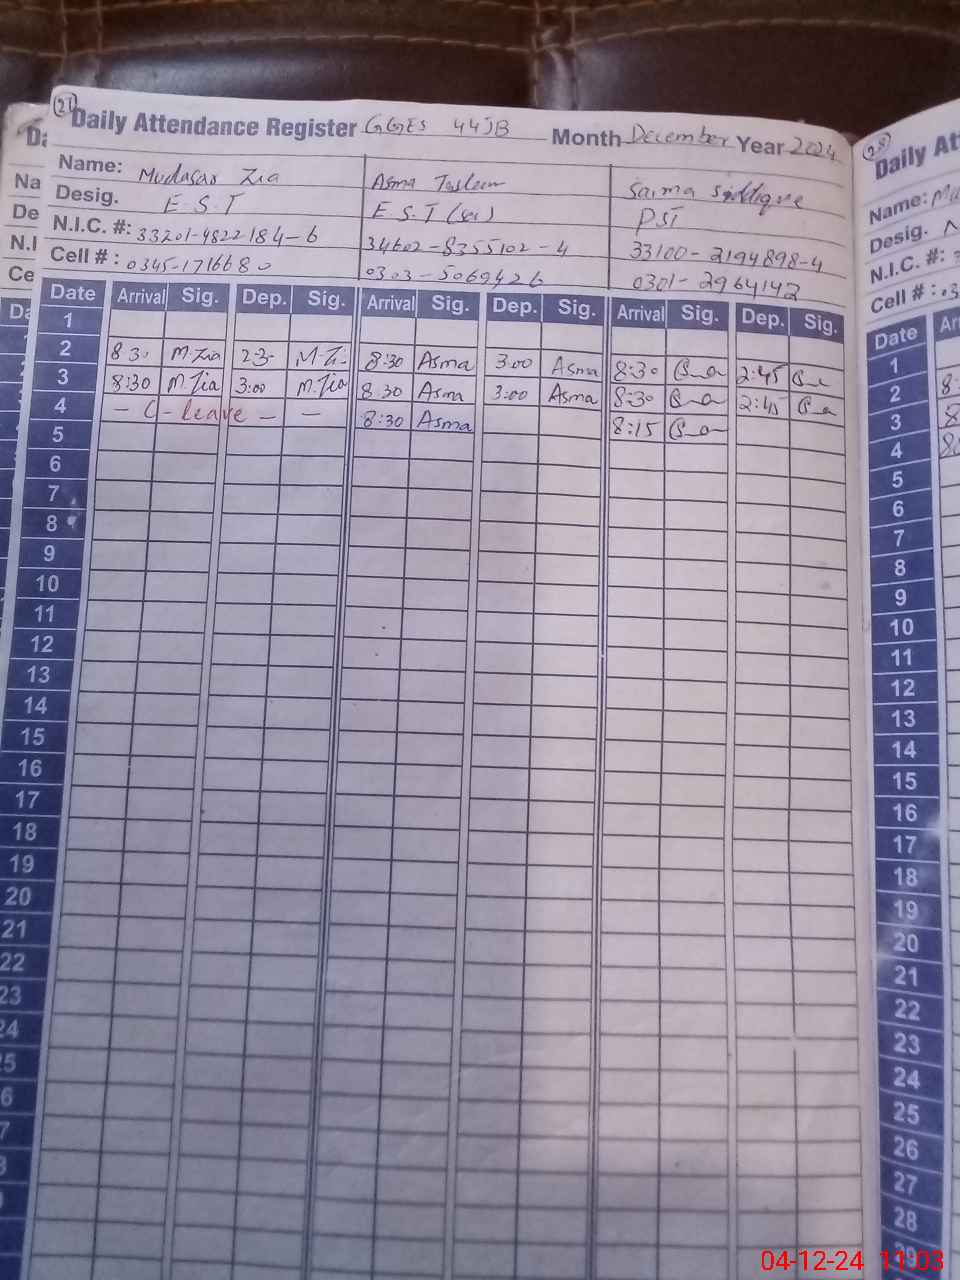 (27) Daily Attendance Register GGES 44JB Month December Year 2024
Name: Mudasar Zia Asma Tasleem Saima Siddique
Desig. E.S.T E S.T (sci) PST
N.I.C. #: 33201-4822184-6 34602-8355102-4 33100-2194898-4
Cell #: 0345-1716680 0303-5069426 0301-2964142
Date Arrival Sig. Dep. Sig. Arrival Sig. Dep. Sig. Arrival Sig. Dep. Sig.
1
2 8 3. M.Zia 2:3- M.Zi- 8:30 Asma 3:00 Asma 8:30 2:45
3 8:30 M.Zia 3:00 M.Zia 8:30 Asma 3:00 Asma 8:30 2:45
4 - C-leave - - 8:30 Asma 8:15
5
6
7
8
9
10
11
12
13
14
15
16
17
18
19
20
21
22
23
24
25
26
27
28
(28) Daily At
Name: Mu
Desig.
N.I.C. #:
Cell #: 03
Date Arr
1
2 8:
3 8
4 8:
5
6
7
8
9
10
11
12
13
14
15
16
17
18
19
20
21
22
23
24
25
26
27
28
29
Da
Na
De
N.I
Ce
Da
04-12-24 11:03